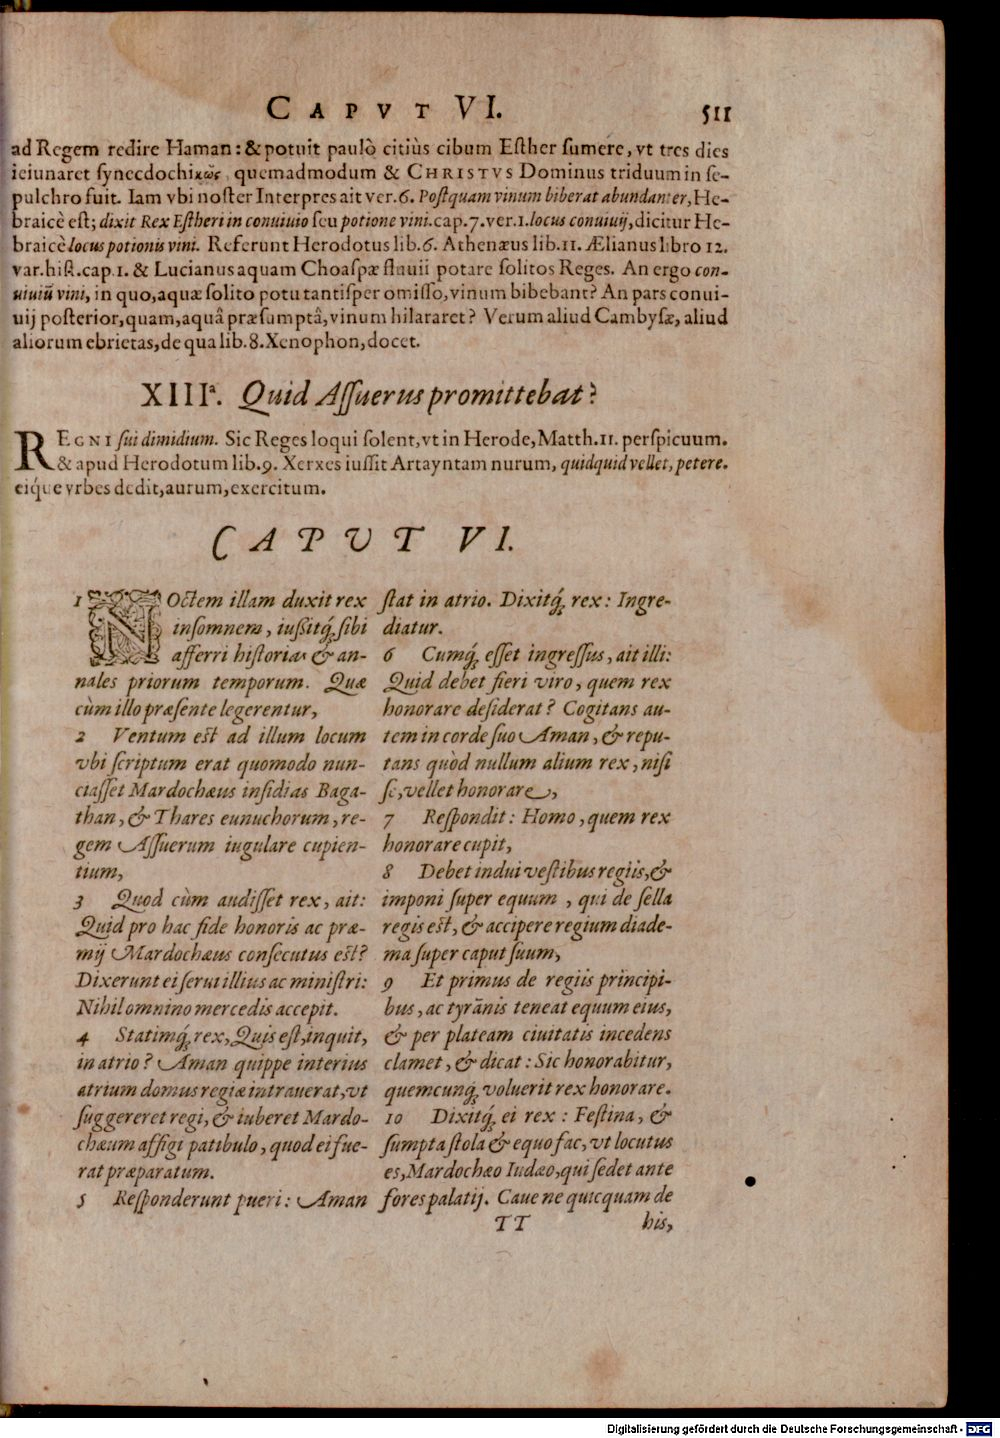 CAPVT VI. 511
ad Regem redire Haman: & potuit paulò citiùs cibum Esther sumere, vt tres dies
ieiunaret synecdochiκῶς, quemadmodum & CHRISTVS Dominus triduum in se-
pulchro fuit. Iam vbi noster Interpres ait ver. 6. Postquam vinum biberat abundanter, He-
braicè est; dixit Rex Estheri in conuiuio seu potione vini. cap. 7. ver. 1. locus conuiuij, dicitur He-
braicè locus potionis vini. Referunt Herodotus lib. 6. Athenæus lib. 11. Ælianus libro 12.
var. hist. cap. 1. & Lucianus aquam Choaspæ fluuii potare solitos Reges. An ergo con-
uiuiũ vini, in quo, aquæ solito potu tantisper omisso, vinum bibebant? An pars conui-
uij posterior, quam, aquâ præsumptâ, vinum hilararet? Verum aliud Cambysæ, aliud
aliorum ebrietas, de qua lib. 8. Xenophon, docet.
XIIIª. Quid Assuerus promittebat?
REGNI sui dimidium. Sic Reges loqui solent, vt in Herode, Matth. 11. perspicuum.
& apud Herodotum lib. 9. Xerxes iussit Artayntam nurum, quidquid vellet, petere.
eiq́ue vrbes dedit, aurum, exercitum.
CAPVT VI.
1 NOctem illam duxit rex
insomnem, iussitq́; sibi
afferri historias & an-
nales priorum temporum. Quæ
cùm illo præsente legerentur,
2 Ventum est ad illum locum
vbi scriptum erat quomodo nun-
ciasset Mardochæus insidias Baga-
than, & Thares eunuchorum, re-
gem Assuerum iugulare cupien-
tium,
3 Quod cùm audisset rex, ait:
Quid pro hac fide honoris ac præ-
mij Mardochæus consecutus est?
Dixerunt ei serui illius ac ministri:
Nihil omnino mercedis accepit.
4 Statimq́; rex, Quis est, inquit,
in atrio? Aman quippe interius
atrium domus regiæ intrauerat, vt
suggereret regi, & iuberet Mardo-
chæum affigi patibulo, quod ei fue-
rat præparatum.
5 Responderunt pueri: Aman
stat in atrio. Dixitq́; rex: Ingre-
diatur.
6 Cumq́; esset ingressus, ait illi:
Quid debet fieri viro, quem rex
honorare desiderat? Cogitans au-
tem in corde suo Aman, & repu-
tans quòd nullum alium rex, nisi
se, vellet honorare,
7 Respondit: Homo, quem rex
honorare cupit,
8 Debet indui vestibus regiis, &
imponi super equum, qui de sella
regis est, & accipere regium diade-
ma super caput suum,
9 Et primus de regiis principi-
bus, ac tyrãnis teneat equum eius,
& per plateam ciuitatis incedens
clamet, & dicat: Sic honorabitur,
quemcunq́; voluerit rex honorare.
10 Dixitq́; ei rex: Festina, &
sumpta stola & equo fac, vt locutus
es, Mardochæo Iudæo, qui sedet ante
fores palatij. Caue ne quicquam de
TT his,
Digitalisierung gefördert durch die Deutsche Forschungsgemeinschaft - DFG